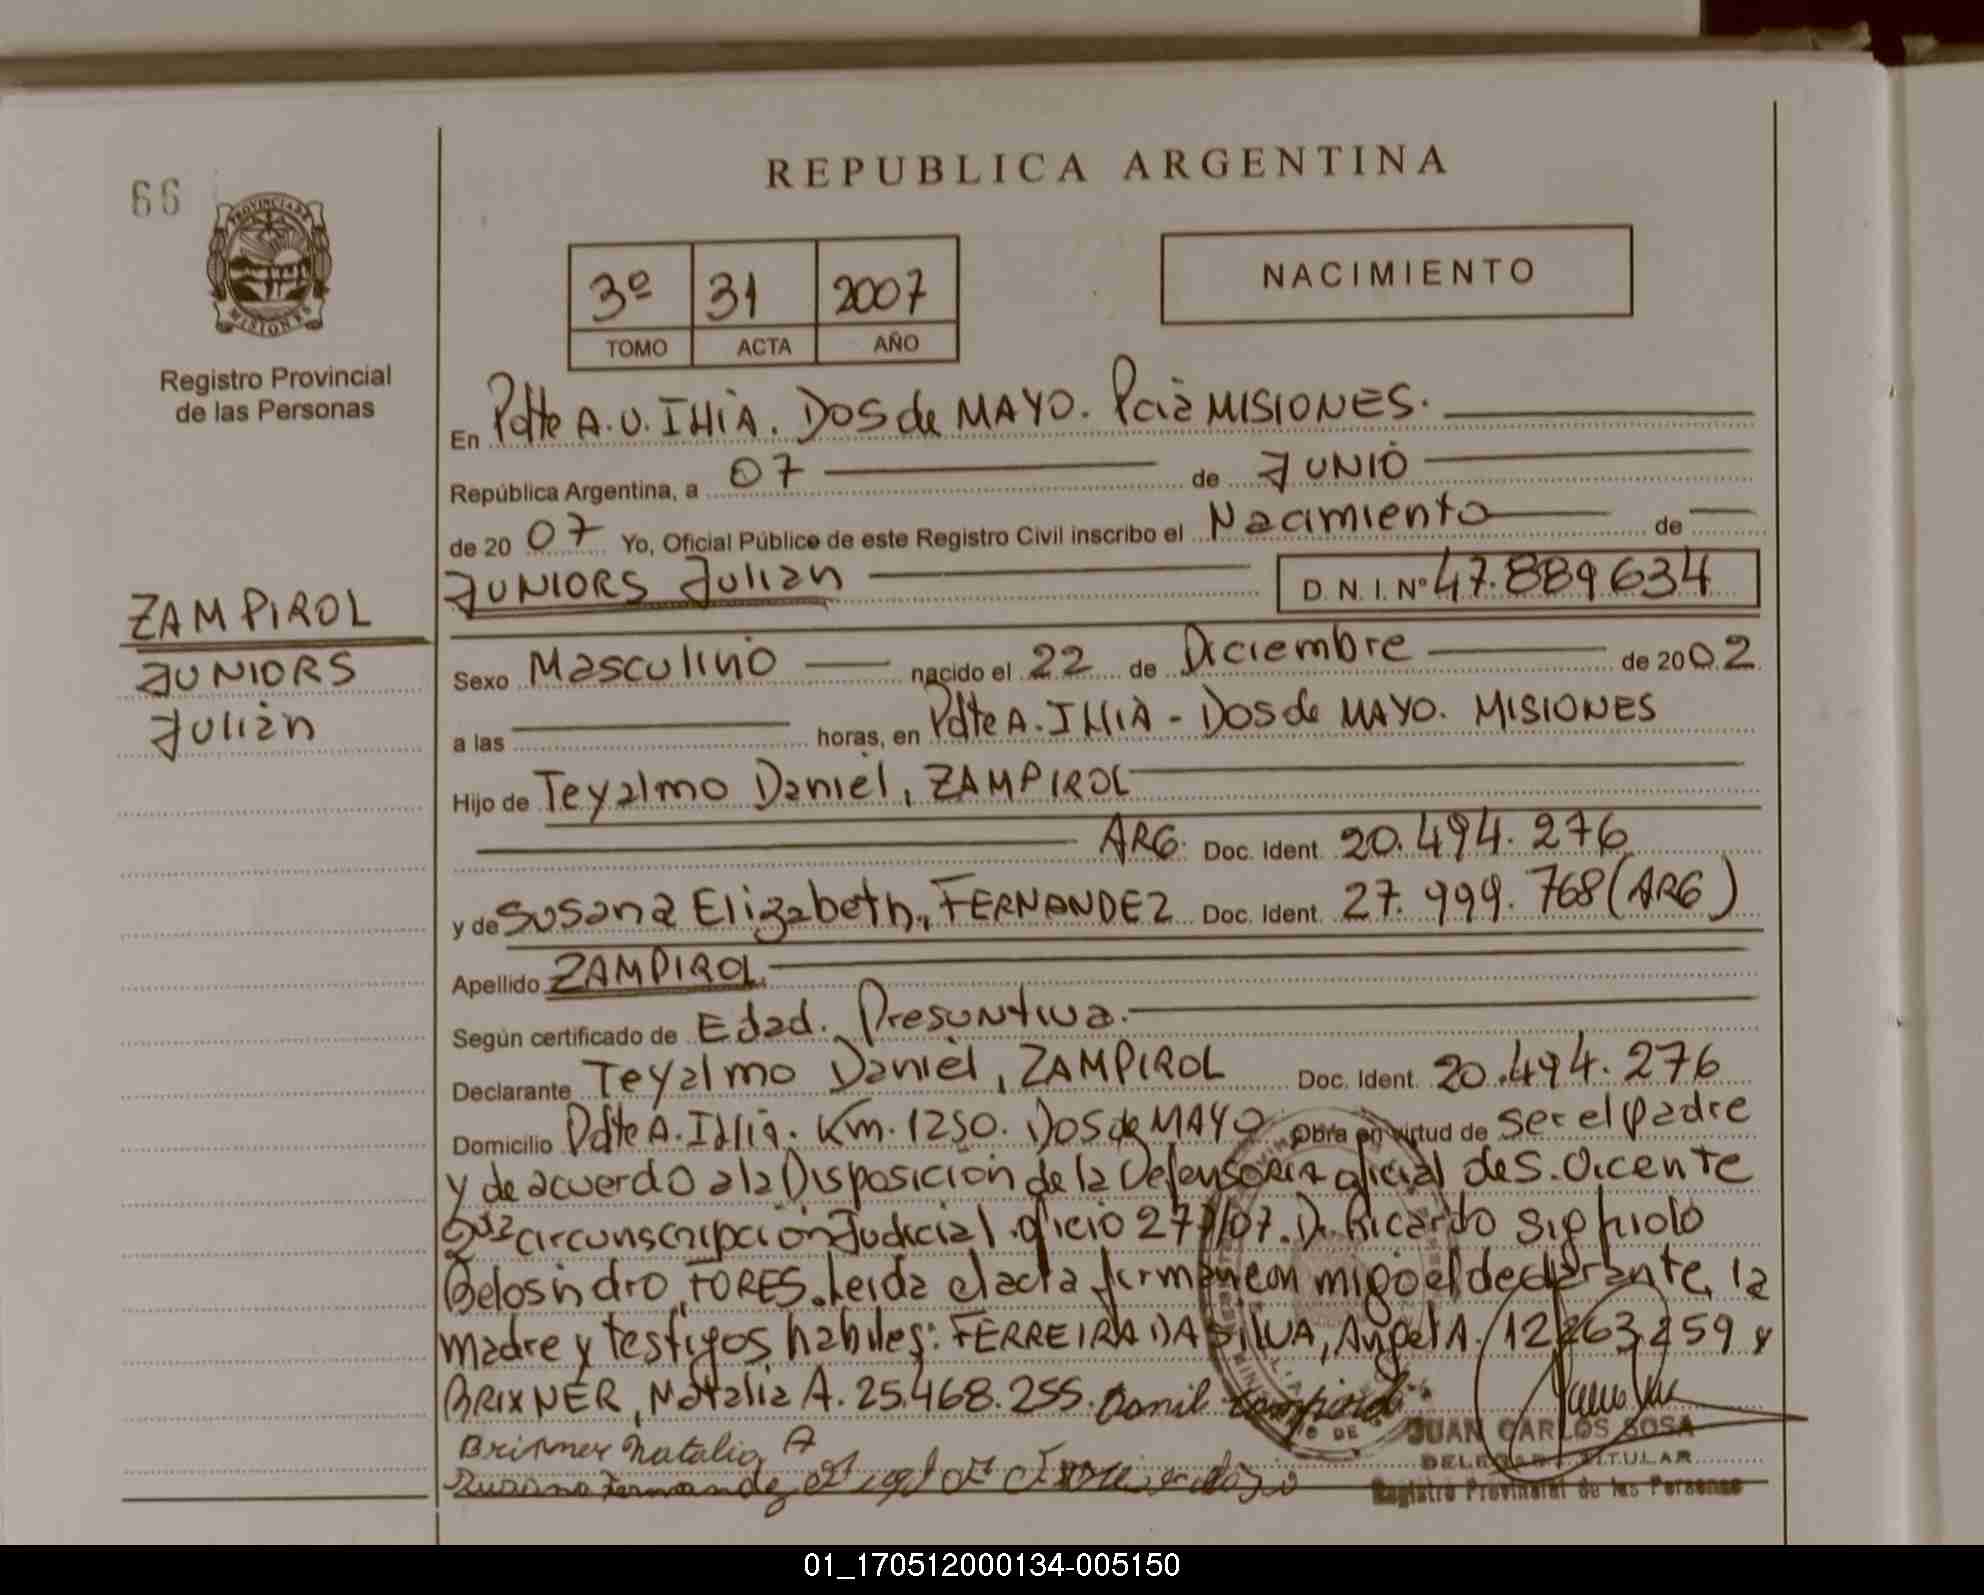 66
REPUBLICA ARGENTINA
PROVINCIA DE
MISIONES
Registro Provincial
de las Personas
3º 31 2007
TOMO ACTA AÑO
NACIMIENTO
En Pdte A. U. Illia. Dos de MAYO. Pcia MISIONES.
República Argentina, a 07 de JUNIO
de 2007 Yo, Oficial Público de este Registro Civil inscribo el Nacimiento de
JUNIORS Julian D. N. I. Nº 47.889634
ZAMPIROL
JUNIORS
Julián
Sexo Masculino nacido el 22 de Diciembre de 2002
a las horas, en Pdte A. Illia - Dos de MAYO. MISIONES
Hijo de Teyalmo Daniel, ZAMPIROL
ARG. Doc. Ident. 20.494.276
y de Susana Elizabeth, FERNANDEZ Doc. Ident. 27.999.768 (ARG)
Apellido ZAMPIROL
Según certificado de Edad. Presuntiva.
Declarante Teyalmo Daniel, ZAMPIROL Doc. Ident. 20.494.276
Domicilio Pdte A. Illia. Km. 1250. Dos de MAYO Obra en virtud de ser el padre
y de acuerdo a la Disposición de la Defensoria oficial de S. Vicente
circunscripción Judicial. oficio 277/07. Dr. Ricardo
TORES. Leida el acta firman con migo el declarante, la
madre y testigos habiles: FERREIRA DA SILVA, Angel A. 12.263.259 y
BRIXNER, Natalia A. 25.468.255.
Brixner Natalia A
Susana Fernandez
JUAN CARLOS SOSA
DELEGADO TITULAR
Registro Provincial de las Personas
01_170512000134-005150